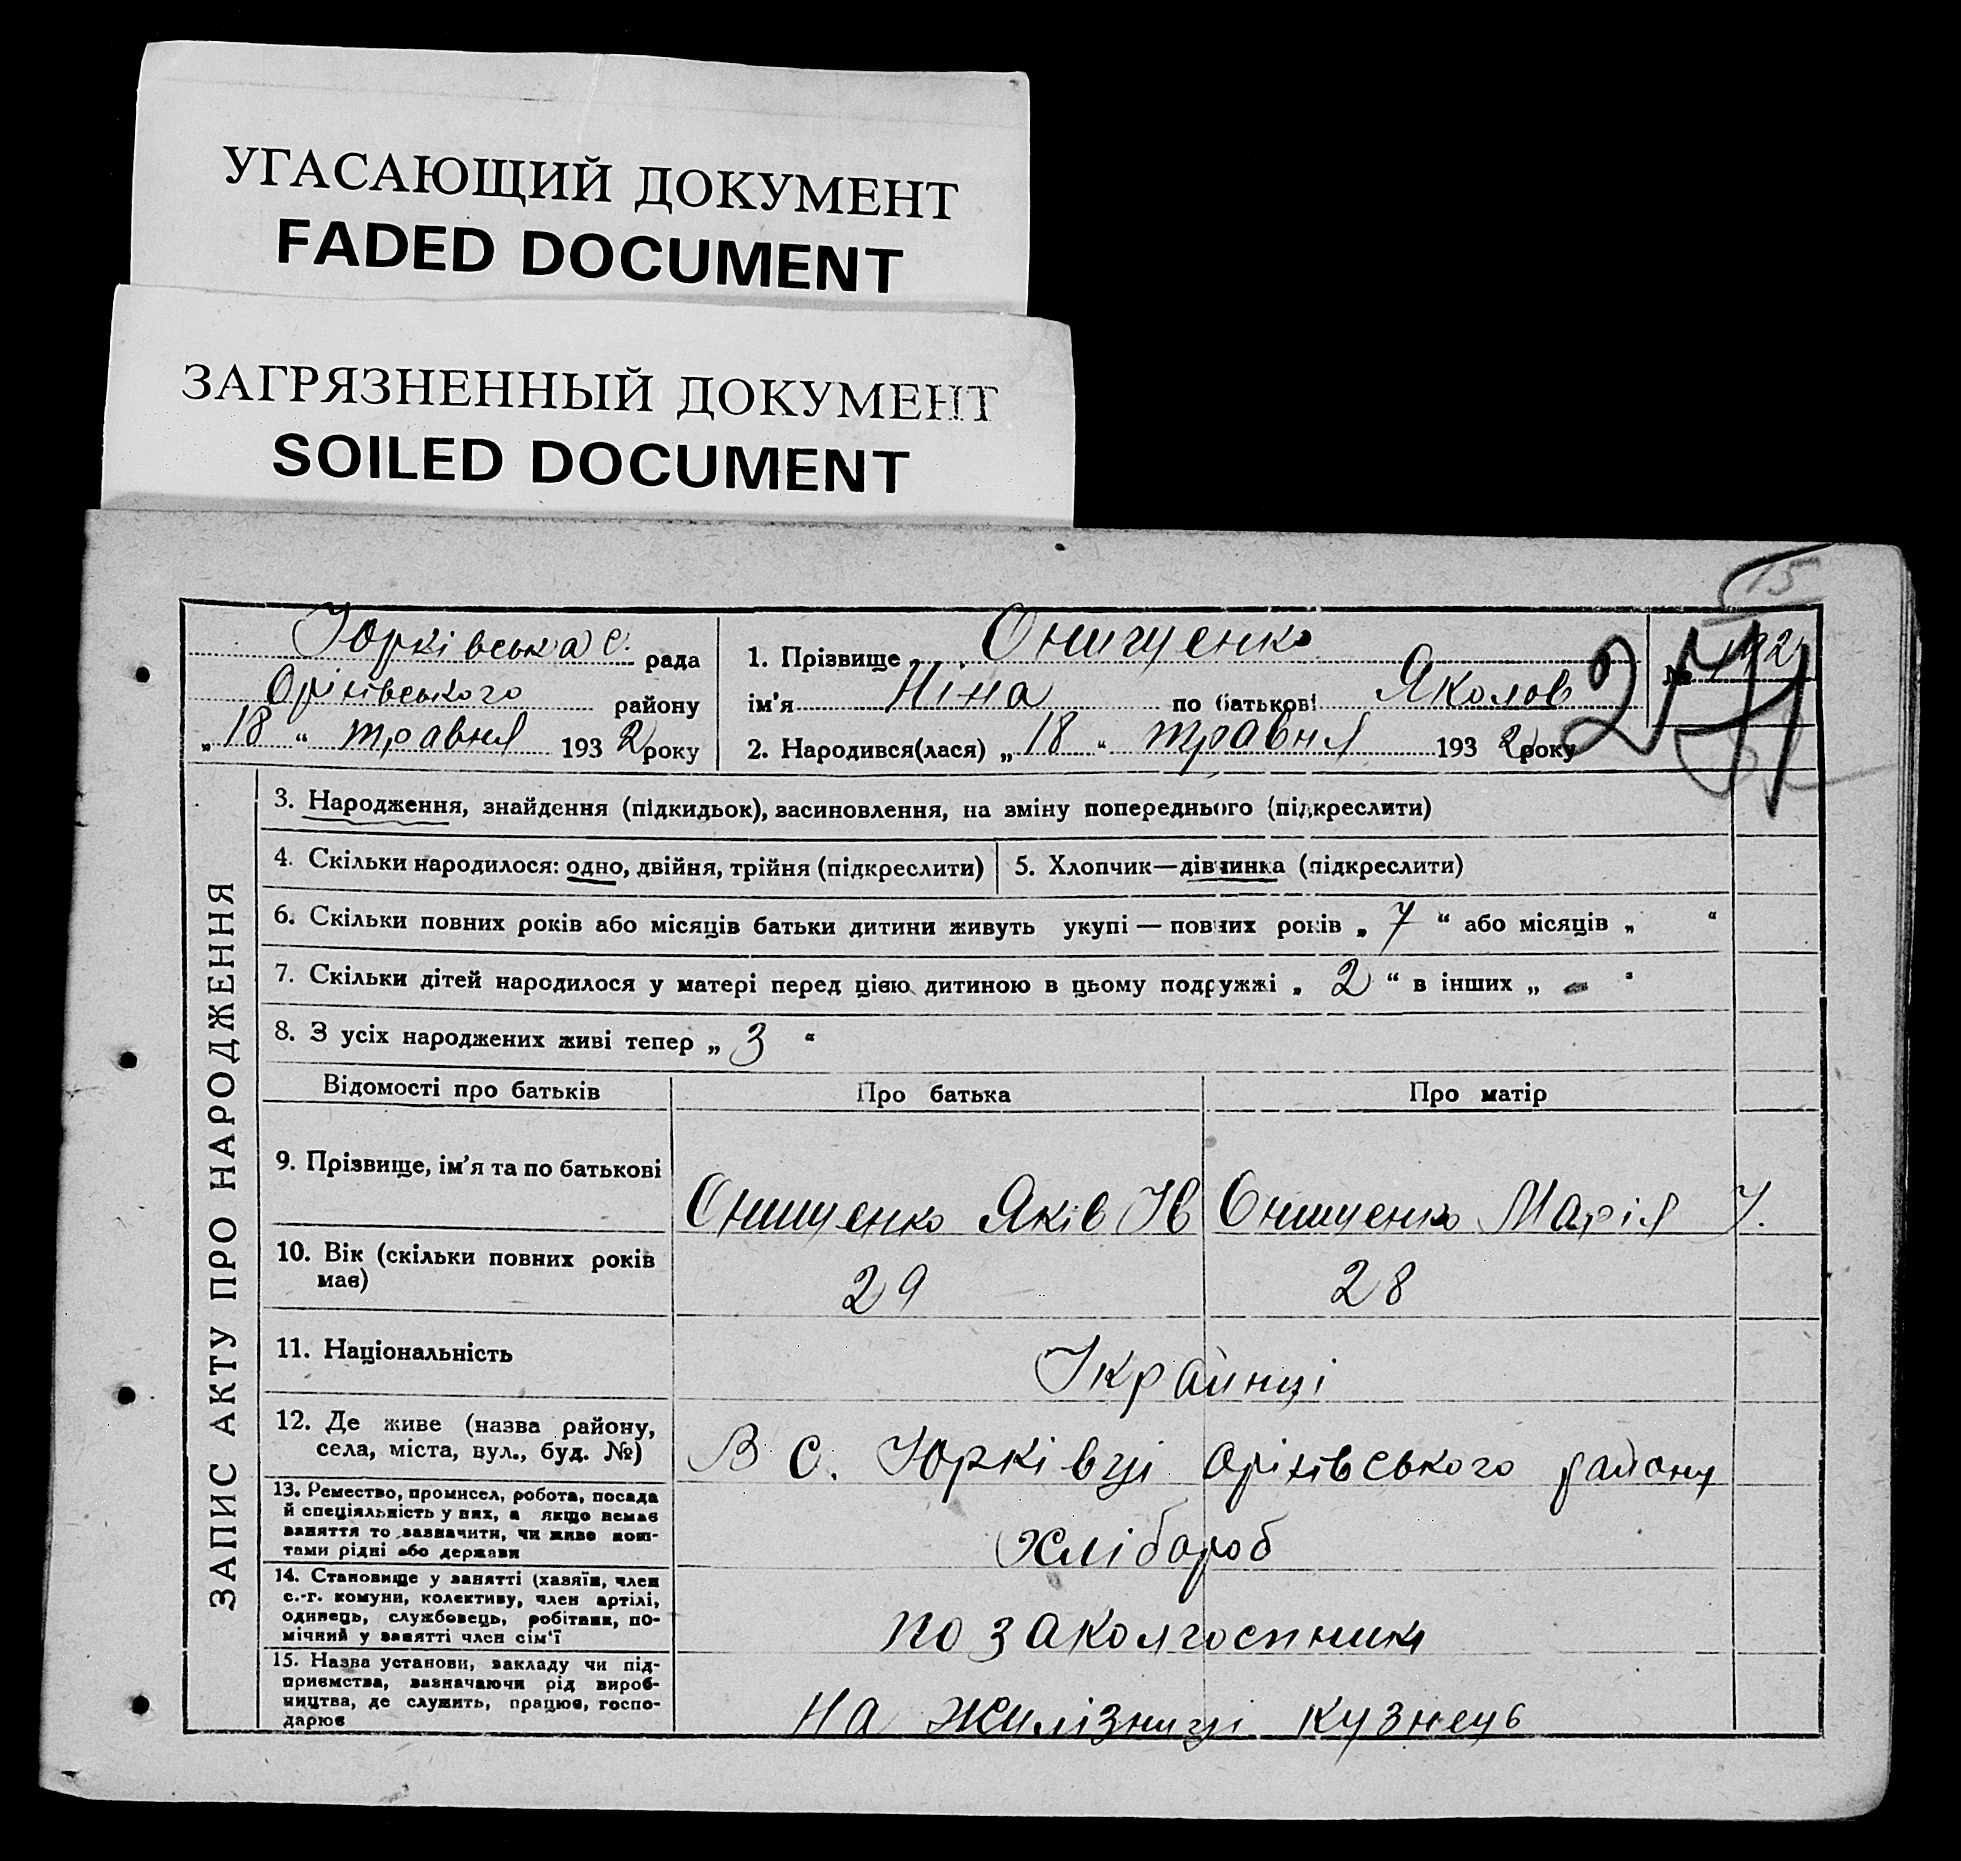 УГАСАЮЩИЙ ДОКУМЕНТ
FADED DOCUMENT
ЗАГРЯЗНЕННЫЙ ДОКУМЕНТ
SOILED DOCUMENT
15
Юрківська с. рада
Оріхівського району
„18“ травня 1932 року
1. Прізвище Онищенко
ім'я Ніна по батькові Яколов
2. Народився(лася) „18“ травня 1932 року
ЗАПИС АКТУ ПРО НАРОДЖЕННЯ
3. Народження, знайдення (підкидьок), засиновлення, на зміну попереднього (підкреслити)
4. Скільки народилося: одно, двійня, трійня (підкреслити) 5. Хлопчик—дівчинка (підкреслити)
6. Скільки повних років або місяців батьки дитини живуть укупі — повних років „7“ або місяців „ “
7. Скільки дітей народилося у матері перед цією дитиною в цьому подружжі „2“ в інших „–“
8. З усіх народжених живі тепер „3“
Відомості про батьків Про батька Про матір
9. Прізвище, ім'я та по батькові Онищенко Яків Ів Онищенко Марія У.
10. Вік (скільки повних років
має) 29 28
11. Національність Українці
12. Де живе (назва району,
села, міста, вул., буд. №) В с. Юрківці Оріхівського району
13. Ремество, промисел, робота, посада
й спеціяльність у них, а якщо немає
заняття то зазначити, чи живе кош-
тами рідні або держави
Хлібороб
14. Становище у занятті (хазяїн, член
с.-г. комуни, колективу, член артілі,
одинець, службовець, робітник, по-
мічний у занятті член сім'ї
позаколгоспник
15. Назва установи, закладу чи під-
приємства, зазначаючи рід вироб-
ництва, де служить, працює, госпо-
дарює
На жилізниці кузнець